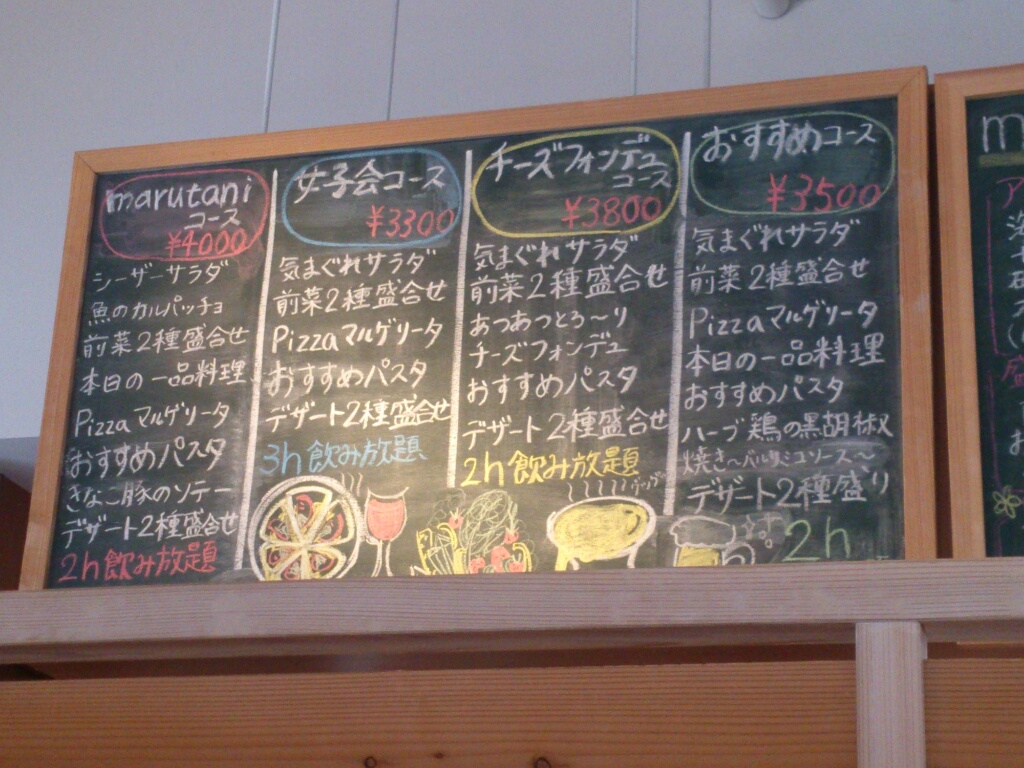 marutani
コース
¥4000
シーザーサラダ
魚のカルパッチョ
前菜2種盛合せ
本日の一品料理
Pizzaマルゲリータ
おすすめパスタ
きなこ豚のソテー
デザート2種盛合せ
2h飲み放題
女子会コース
¥3300
気まぐれサラダ
前菜2種盛合せ
Pizzaマルゲリータ
おすすめパスタ
デザート2種盛合せ
3h飲み放題
チーズフォンデュ
コース
¥3800
気まぐれサラダ
前菜2種盛合せ
あつあつとろ〜り
チーズフォンデュ
おすすめパスタ
デザート2種盛合せ
2h飲み放題
おすすめコース
¥3500
気まぐれサラダ
前菜2種盛合せ
Pizzaマルゲリータ
本日の一品料理
おすすめパスタ
ハーブ鶏の黒胡椒
焼き〜バルサミコソース〜
デザート2種盛り
2h
m